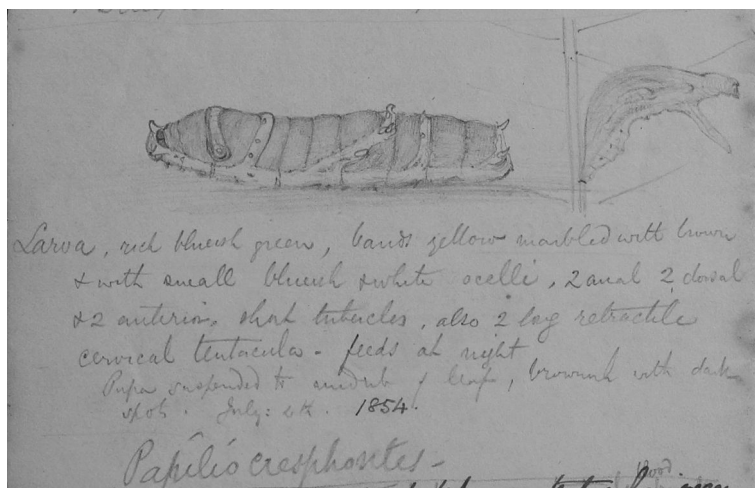 Larva, rich blueish green, bands yellow marbled with brown
& with small blueish & white ocelli, 2 anal 2 dorsal
& 2 anterior, short tubercles, also 2 log retractile
cervical tentacula - feeds at night
Pupa suspended to midrib of leaf, brownish with dark
spots. July: 1854.
Papilio cresphontes -